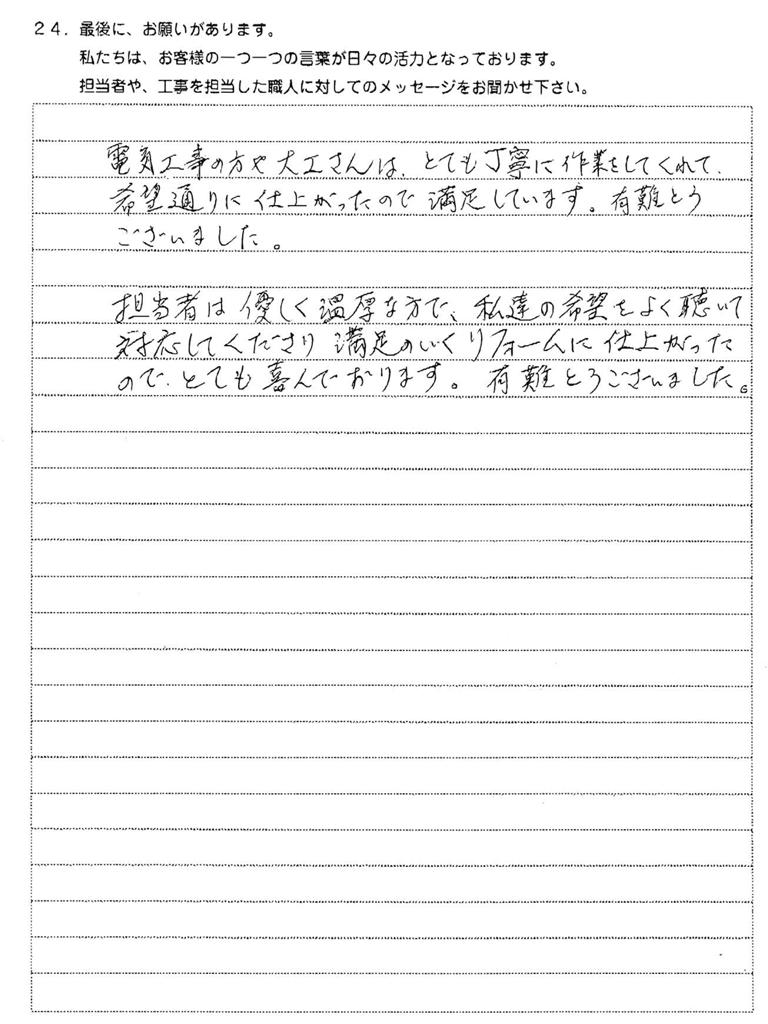 24. 最後に、お願いがあります。
私たちは、お客様の一つ一つの言葉が日々の活力となっております。
担当者や、工事を担当した職人に対してのメッセージをお聞かせ下さい。
電気工事の方や大工さんは、とても丁寧に作業をしてくれて、
希望通りに仕上がったので満足しています。有難とう
ございました。
担当者は優しく温厚な方で、私達の希望をよく聴いて
対応してくださり満足のいくリフォームに仕上がった
ので、とても喜んでおります。有難とうございました。